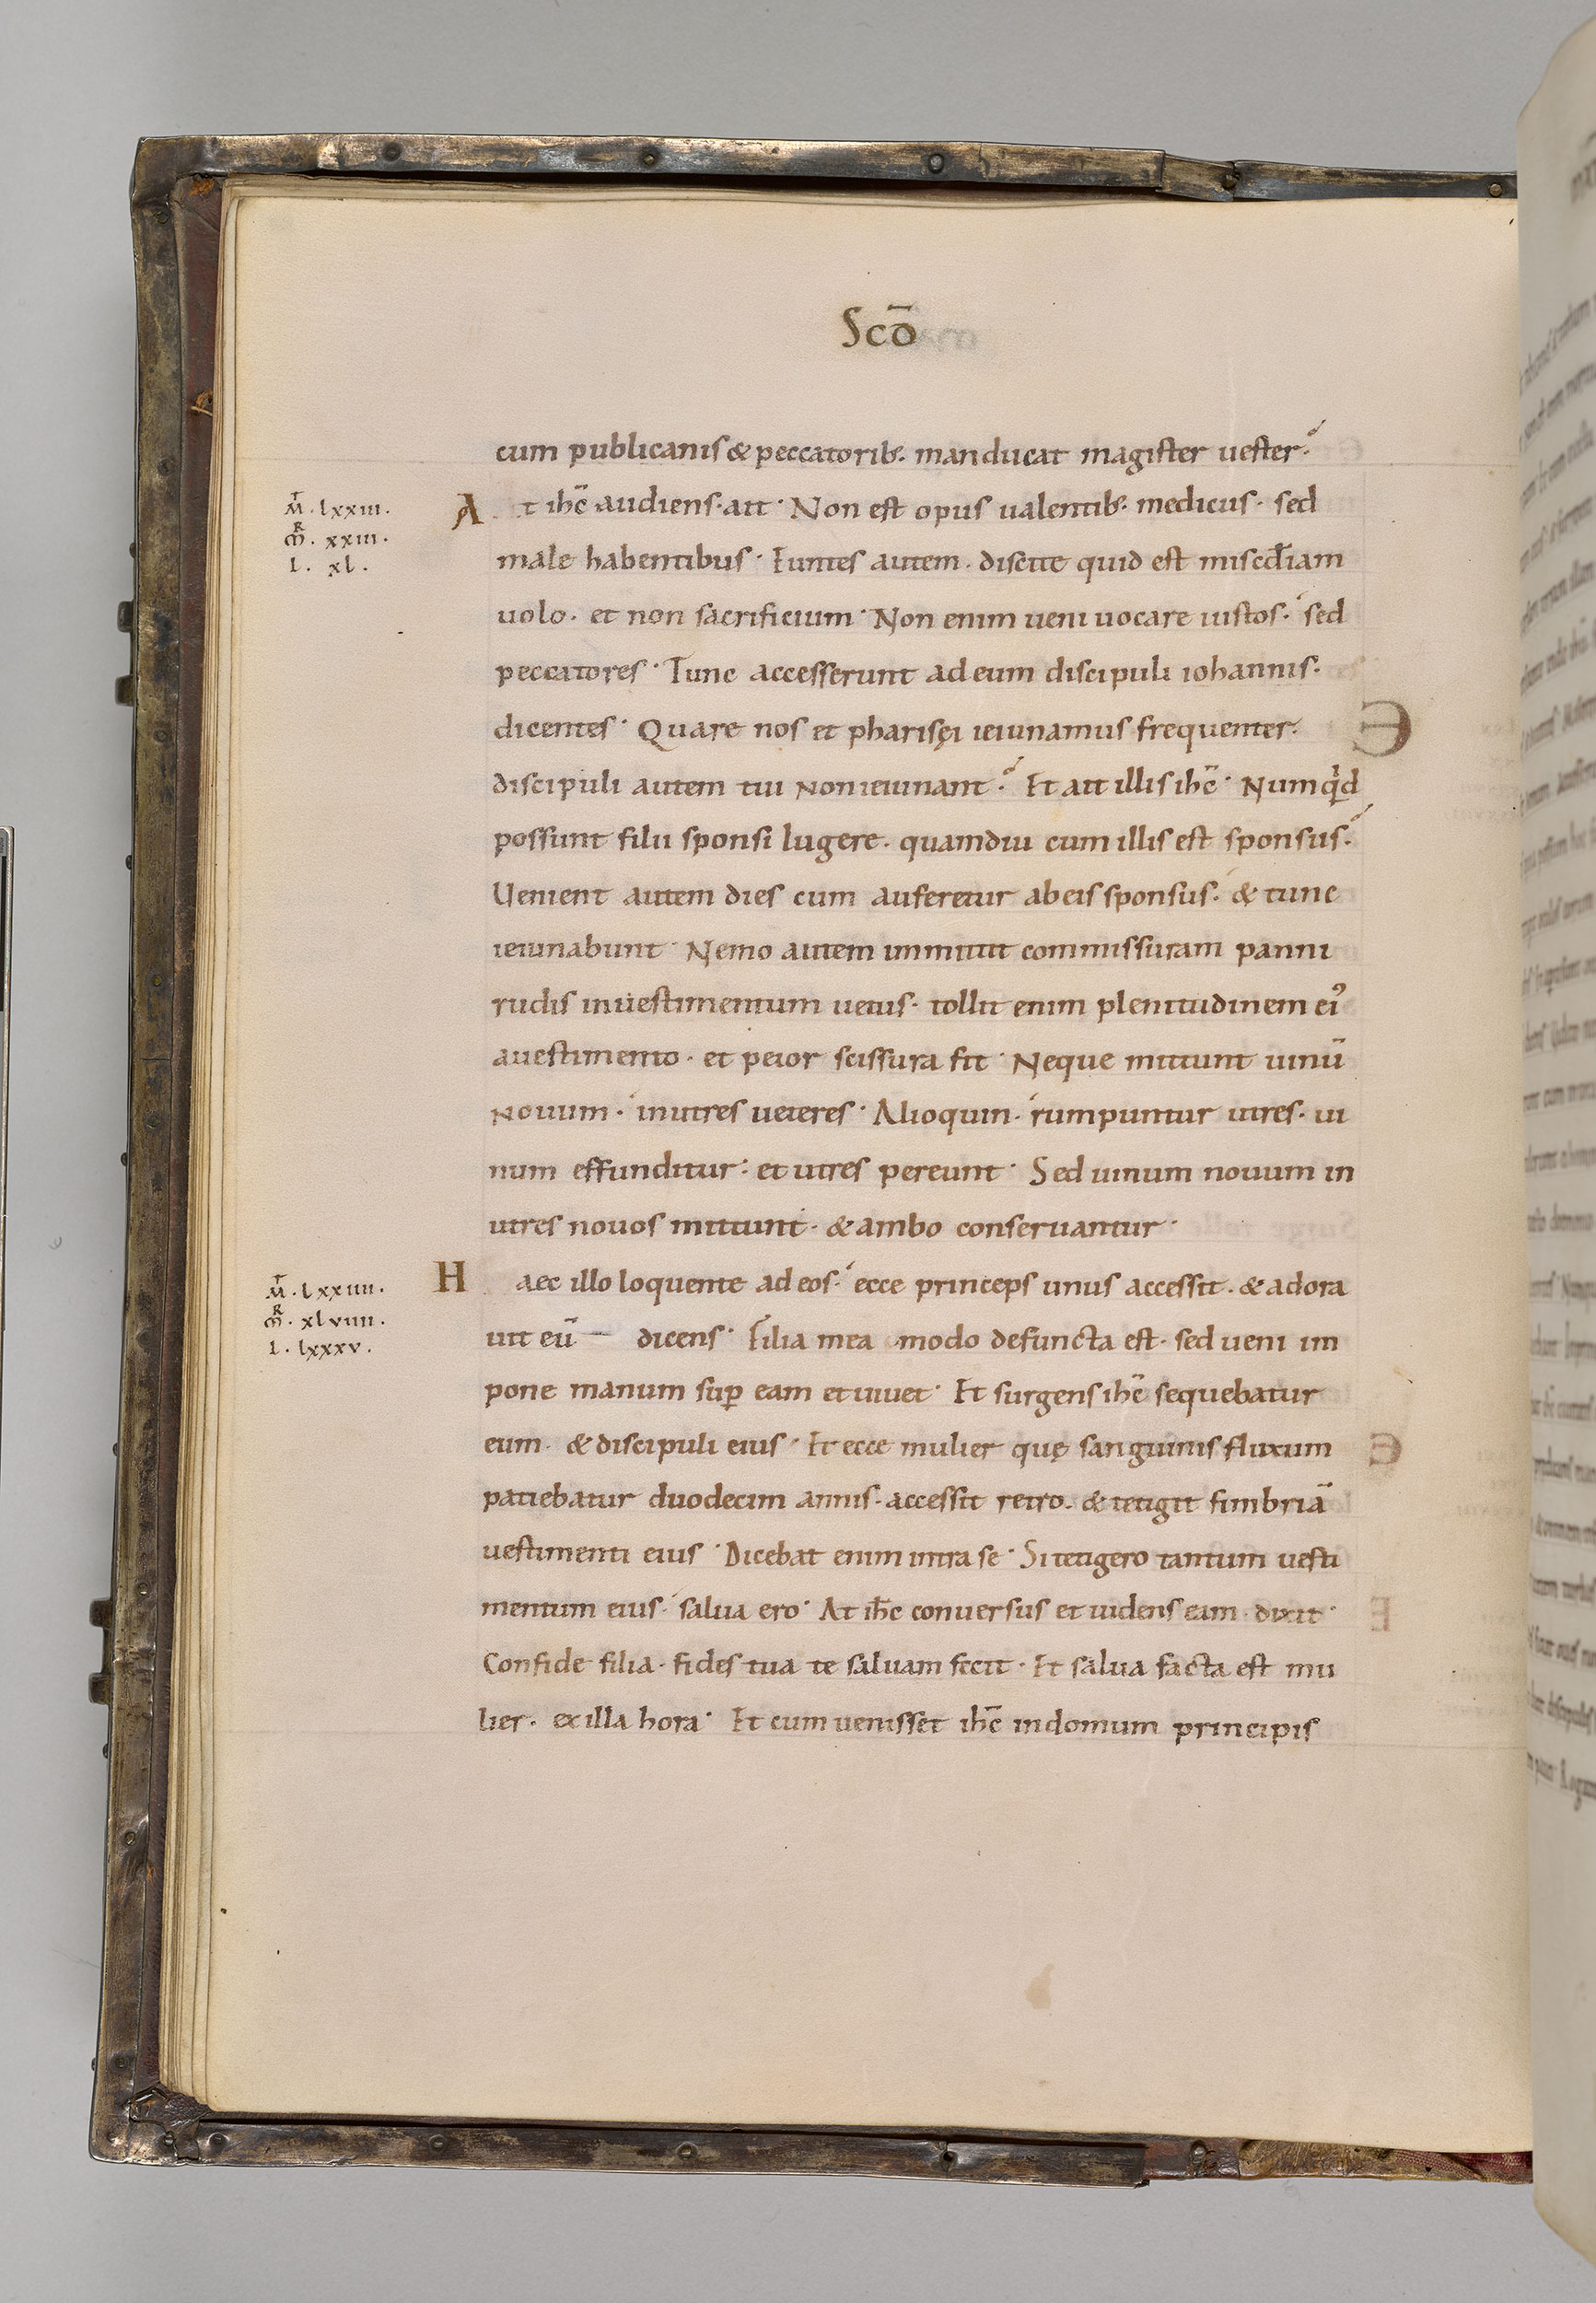 Scd̄
cum publicanis & peccatorib;. manducat magister uester?
M̄T. lxxiii.
M̄R. xxiii.
L. xl.
At ihc̄ audiens. ait. Non est opus ualentib;. medicus. sed
male habentibus. Euntes autem. discite quid est misc̄diam
uolo. et non sacrificium. Non enim ueni uocare iustos. sed
peccatores. Tunc accesserunt ad eum discipuli iohannis.
dicentes. Quare nos et pharisęi ieiunamus frequenter.
discipuli autem tui non ieiunant? Et ait illis ihc̄. Numqⁱd
possunt filii sponsi lugere. quamdiu cum illis est sponsus?
Uenient autem dies cum auferetur ab eis sponsus. & tunc
ieiunabunt. Nemo autem inmittit commissuram panni
rudis in uestimentum uetus. tollit enim plenitudinem ei᾽
a uestimento. et peior scissura fit. Neque mittunt uinū
nouum. in utres ueteres. Alioquin. rumpuntur utres. ui
num effunditur: et utres pereunt. Sed uinum nouum in
utres nouos mittunt. & ambo conseruantur.
M̄T. lxxiiii.
M̄R. xlviiii.
L. lxxxv.
Haec illo loquente ad eos. ecce princeps unus accessit. & adora
uit eū dicens. Filia mea modo defuncta est. sed ueni im
pone manum sup̄ eam et uiuet. Et surgens ihc̄ sequebatur
eum. & discipuli eius. Et ecce mulier quę sanguinis fluxum
patiebatur duodecim annis. accessit retro. & tetigit fimbriā
uestimenti eius. Dicebat enim intra se. Si tetigero tantum uesti
mentum eius. salua ero. At ihc̄ conuersus et uidens eam. dixit.
Confide filia. fides tua te saluam fecit. Et salua facta est mu
lier. ex illa hora. Et cum uenisset ihc̄ in domum principis